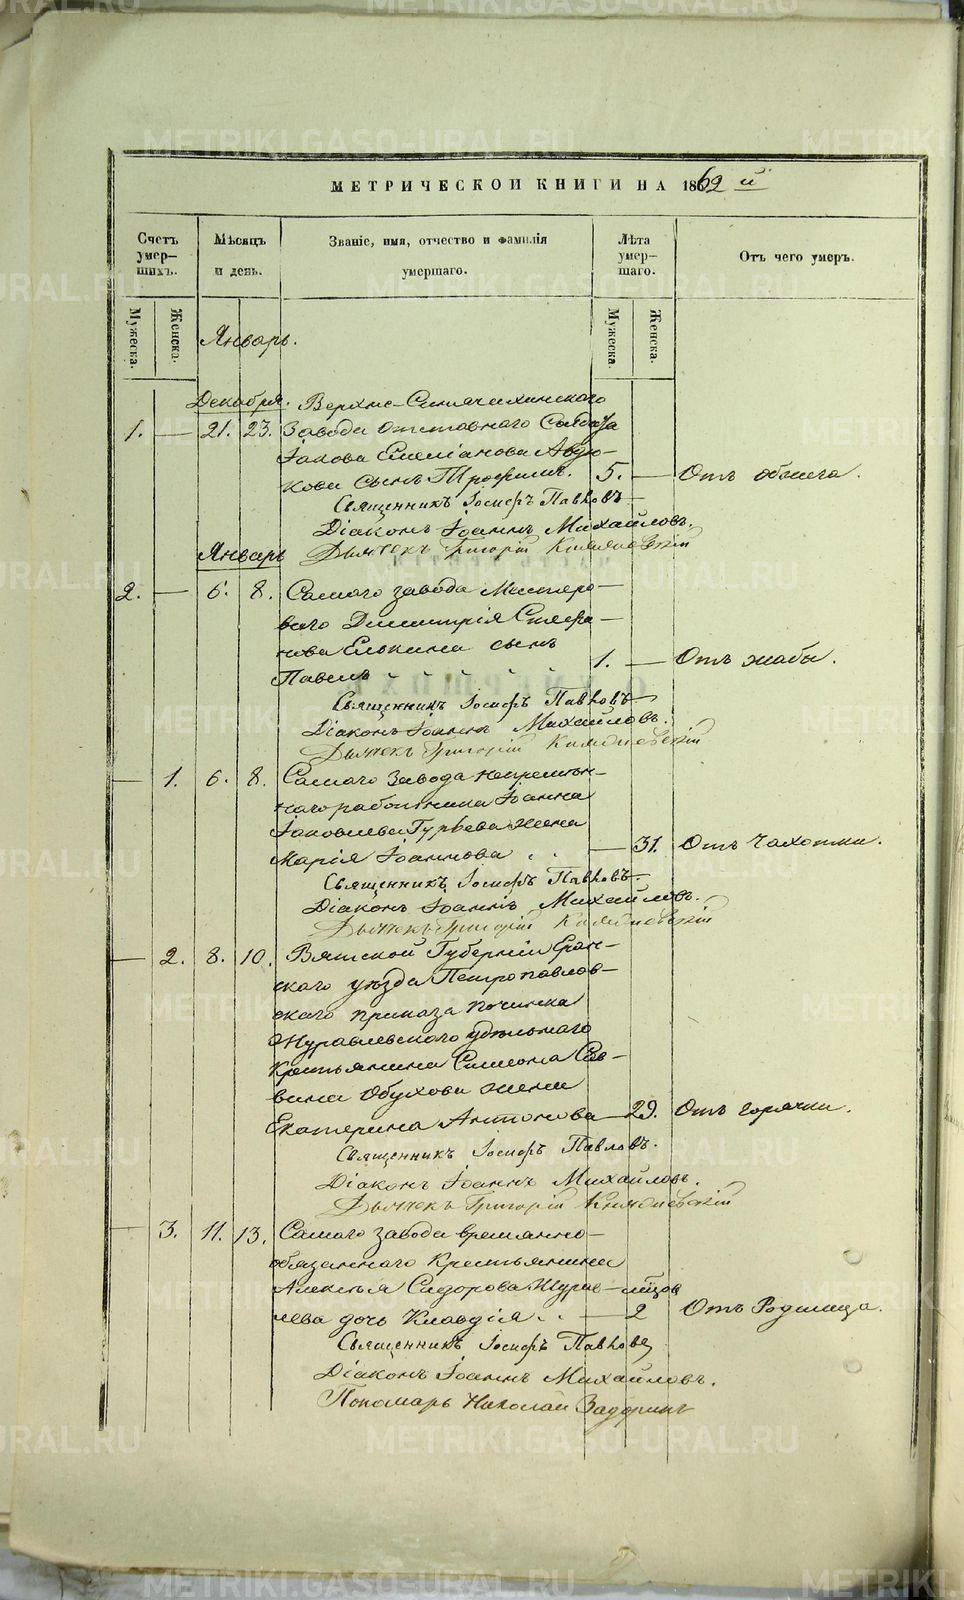 МЕТРИЧЕСКОЙ КНИГИ НА 1862 й
Счетъ умер-шихъ.
Мѣсяцъ и день.
Званіе, имя, отчество и фамилія умершаго.
Лѣта умер-шаго.
Отъ чего умеръ.
Мужеска.
Женска.
Мужеска.
Женска.
Январь.
Декабря. Верхне-Синячихинскаго
1. — 21. 23. Завода отставного Солдата
Іакова Емеліанова Авдю-
кова сынъ Трофимъ. 5. — Отъ обжега.
Священникъ Іосифъ Павловъ
Діаконъ Іоаннъ Михайловъ.
Январь Дьячекъ Григорій
2. — 6. 8. Самаго завода Мастеро-
ваго Димитрія Стефа-
нова Елькина сынъ
Павелъ „ „ „ „ 1. — Отъ жабы.
Священникъ Іосифъ Павловъ
Діаконъ Іоаннъ Михайловъ.
Дьячекъ Григорій
— 1. 6. 8. Самаго Завода непремѣн-
наго работника Іоанна
Іаковлева Гурьева жена
Марія Іоаннова . . — 31. Отъ Чахотки.
Священникъ Іосифъ Павловъ.
Діаконъ Іоаннъ Михайловъ.
Дьячекъ Григорій
— 2. 8. 10. Вятской Губерніи Яран-
скаго уѣзда Петропавлов-
скаго приказа починка
Журавлевскаго удѣльнаго
Крестьянина Симеона Сав-
вина Обухова жена
Екатерина Антонова — 29. Отъ горячки.
Священникъ Іосифъ Павловъ.
Діаконъ Іоаннъ Михайловъ.
Дьячекъ Григорій
— 3. 11. 13. Самаго завода временно-
обязаннаго Крестьянина
Алексѣя Сидорова Журав-
лева дочь Клавдія . . — 2 Отъ Родимца.
Священникъ Іосифъ Павловъ
Діаконъ Іоаннъ Михайловъ.
Пономарь Николай Задоринъ
METRIKI.GASO-URAL.RU